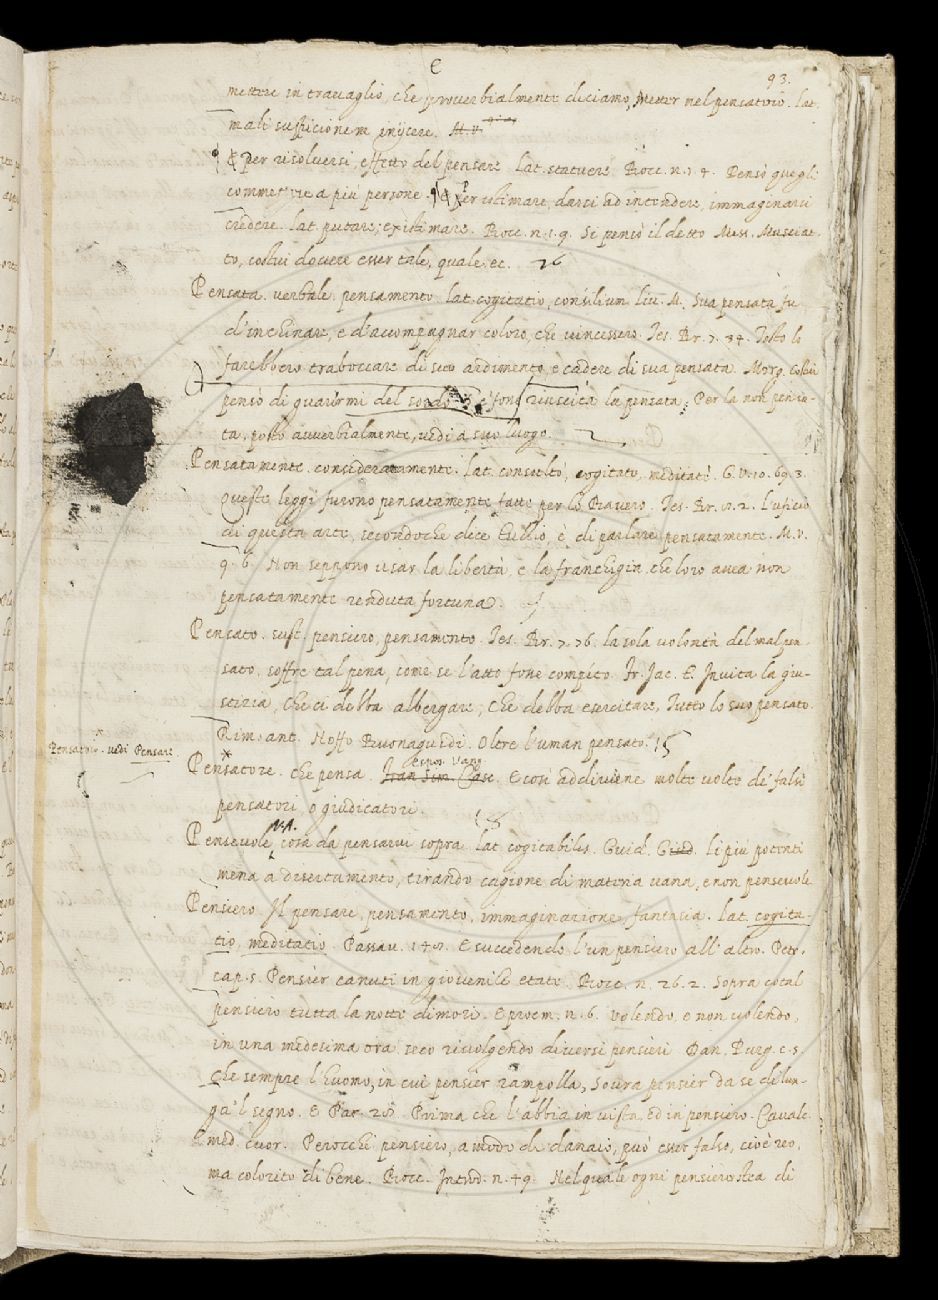 E
93.
mettere in travaglio, che proverbialmente diciamo, Metter nel pensatoio. lat.
mali suspicionem inijcere. M. V.
¶ E per risolversi, effetto del pensare. Lat. statuere. Bocc. n. 1. 4. Pensò quegli
commettere a più persone. ¶ E per istimare, darsi ad intendere, immaginarsi
credere. lat. putare, existimare. Bocc. n. 1. 9. Si pensò il detto Mess. Musciat-
to, costui dovere esser tale, quale, ec. 26
Pensata. verbale. pensamento. Lat. cogitatio, consilium. Liv. M. Sua pensata fu
d'inchinare, e d'accompagnar coloro, che vincessero. Tes. Br. 7. 34. Tosto lo
farebbero traboccare di suo ardimento, e cadere di sua pensata. Morg. Costui
pensò di guarirmi del sordo e fugli riuscita la pensata. Per la non pensa-
ta, posto avverbialmente, vedi a suo luogo.
Pensatamente. consideratamente. Lat. consultò, cogitatò, meditatè. G. V. 10. 69. 3.
Queste leggi furono pensatamente fatte per lo Bavero. Tes. Br. 2. L'uficio
di questa arte, secondochè dice Tullio, è di parlare pensatamente. M. V.
9. 6. Non seppono usar la libertà, e la franchigia, che loro avea non
pensatamente renduta fortuna.
Pensato. sust. pensiero, pensamento. Tes. Br. 7. 76. la sola volontà del malpen-
sato, soffre tal pena, come se l'atto fosse compito. Fr. Jac. T. Invita la giu-
stizia, Che ci debba albergare, Che debba esercitare, Tutto lo suo pensato.
Rim. ant. Noffo Buonaguidi. Oltre l'uman pensato. 15
Pensatoio. vedi Pensare.
Pensatore. che pensa. Espos. Vang. E così addiviene molte volte de' falsi
pensatori, o giudicatori.
Pensevole. V. A. cosa da pensarvi sopra. lat. cogitabilis. Guid. Giud. li più potenti
mena a disertamento, tirando cagione di materia vana, e non pensevole
Pensiero. Il pensare, pensamento, immaginazione, fantasia. Lat. cogita-
tio, meditatio. Passav. E succedendo l'un pensiero all'altro. Petr.
cap. 5. Pensier canuti in giovenile etate. Bocc. n. 26. 2. Sopra cotal
pensiero tutta la notte dimorò. E proem. n. 6. Volendo, e non volendo,
in una medesima ora seco rivolgendo diversi pensieri. Dan. Purg. c. 5.
Che sempre l'huomo, in cui pensier rampolla, Sovra pensier da se dilun-
ga'l segno. E Par. Prima che l'abbia in vista, ed in pensiero. Cavalc.
med. cuor. Perocchè pensiero, a modo di danaio, può esser falso, cioè reo,
ma colorito di bene. Bocc. Introd. n. 49. Nel quale ogni pensiero stea di